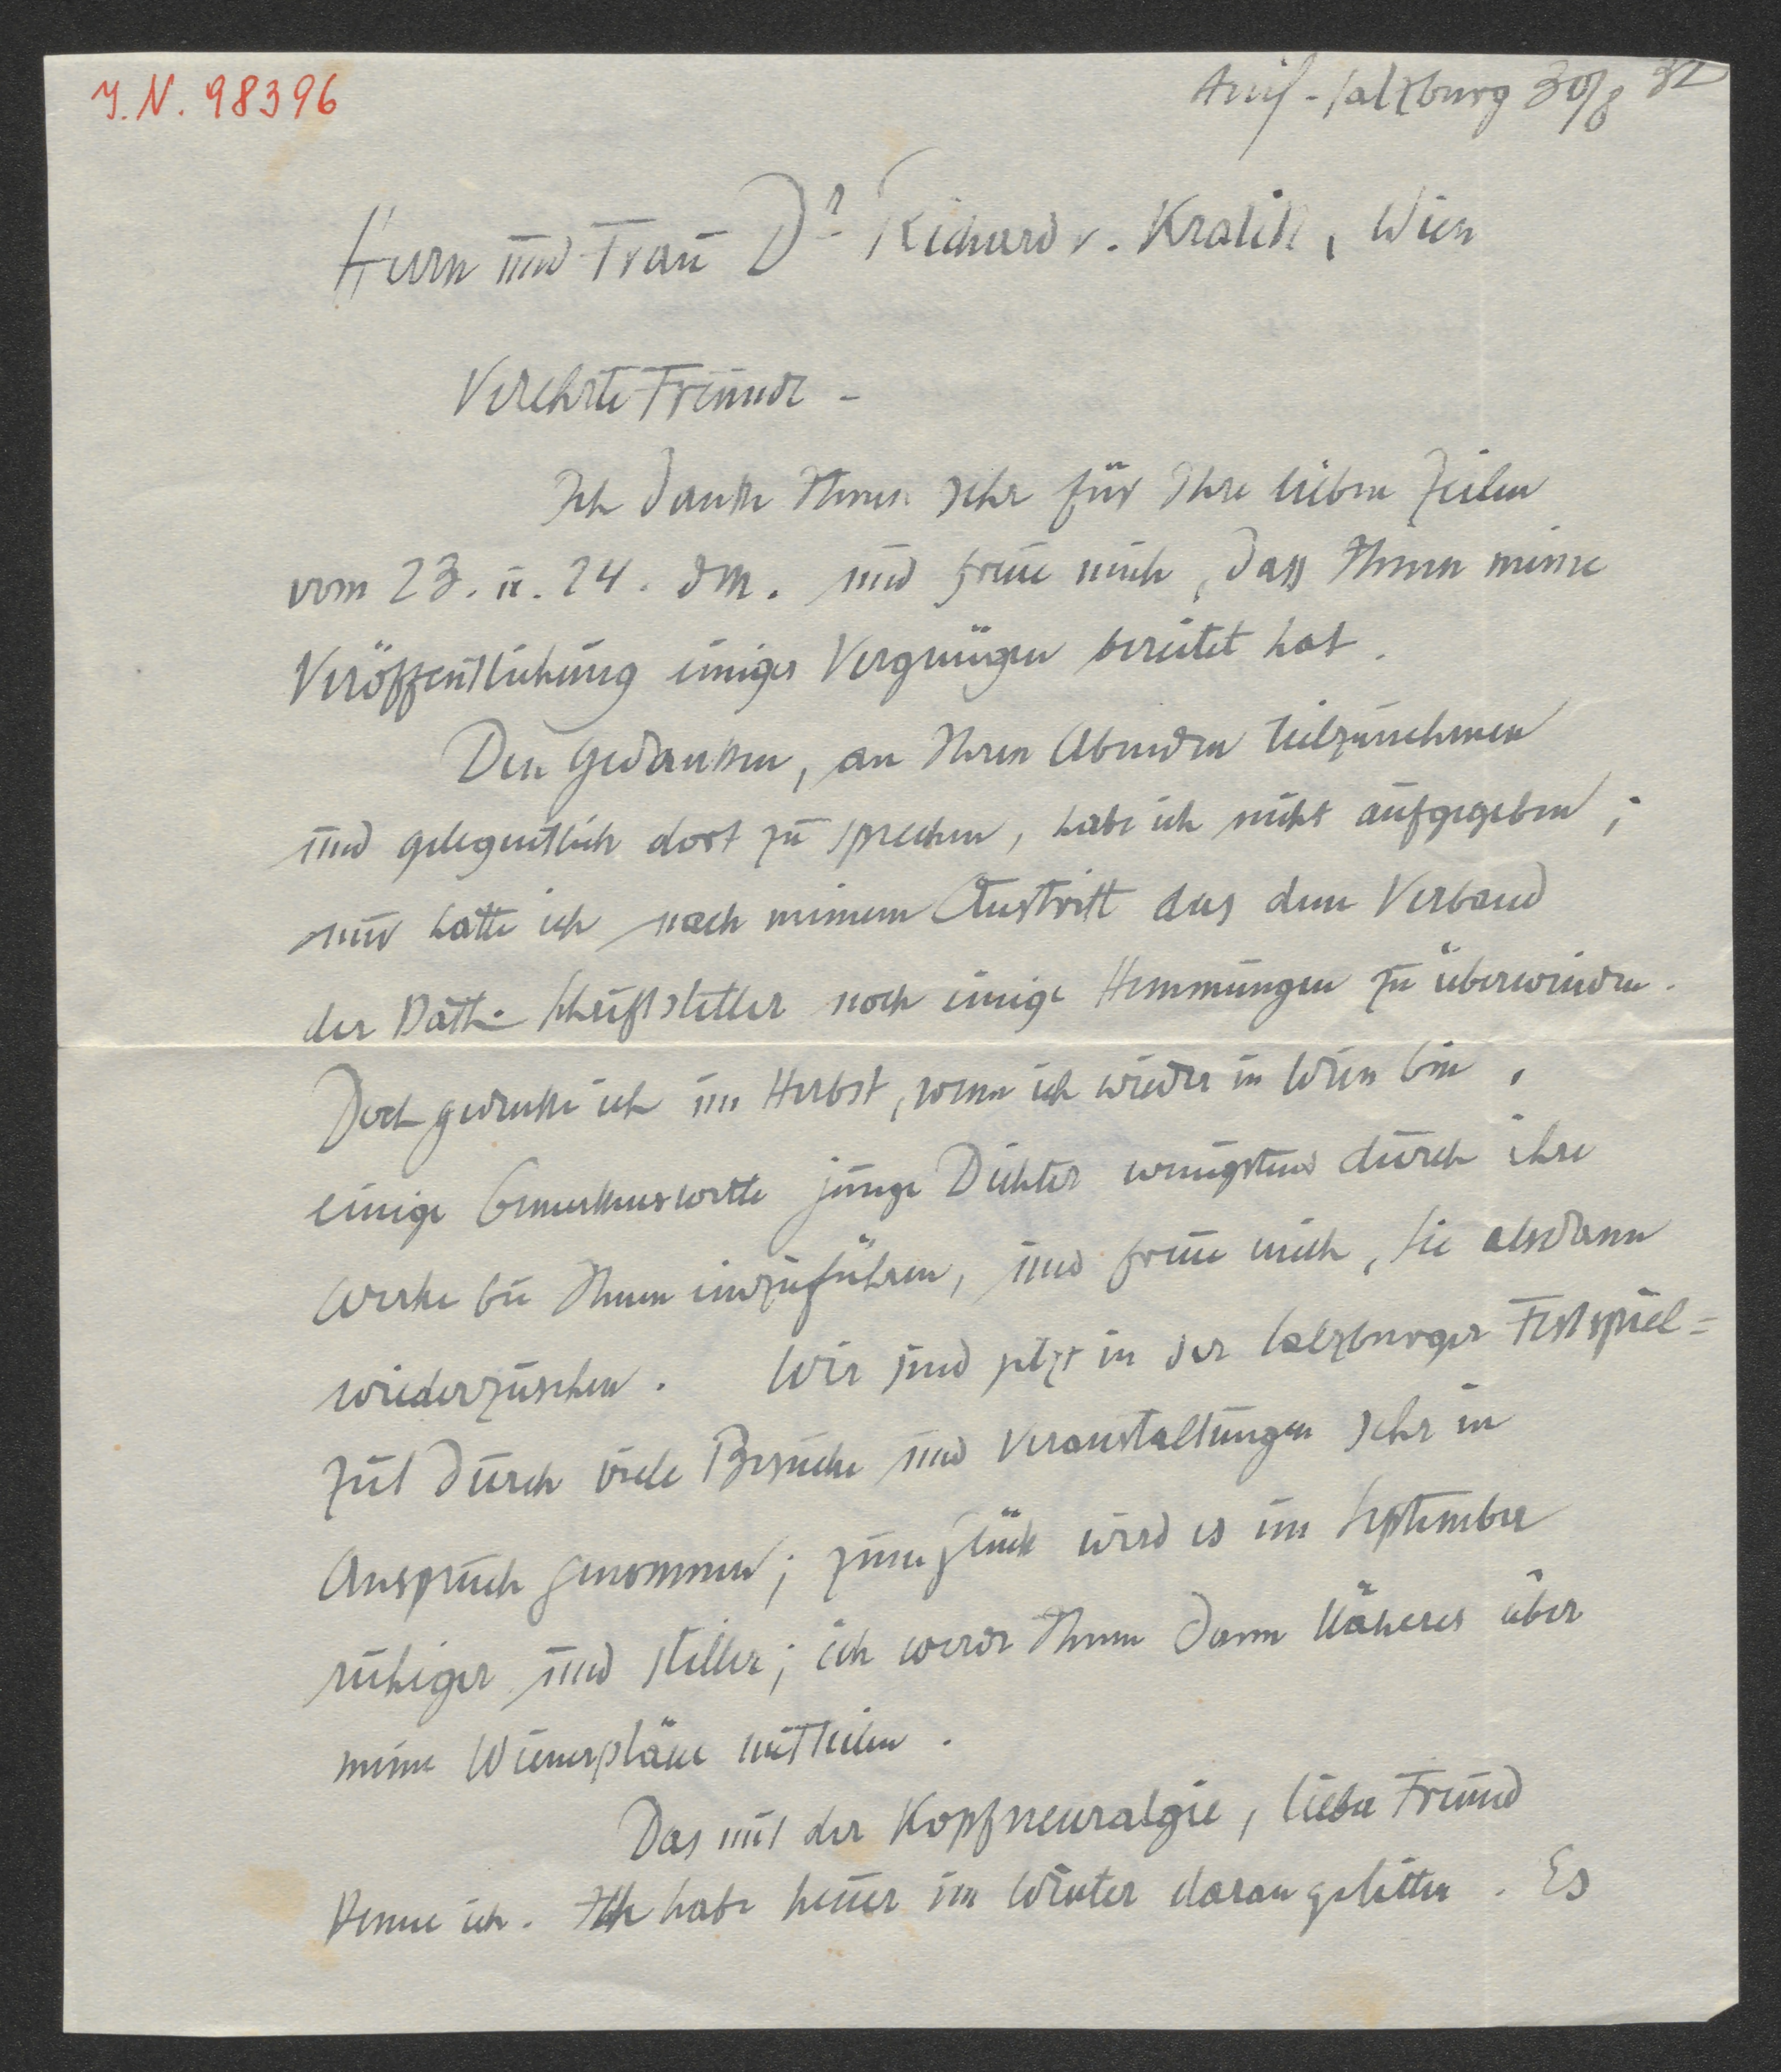 J.N. 98396
Anif-Salzburg 30/8 32
Herrn und Frau Dr Richard v. Kralik, Wien
Verehrte Freunde -
Ich danke Ihnen sehr für Ihre lieben Zeilen
vom 23. u. 24. dM. und freue mich, dass Ihnen meine
Veröffentlichung einiges Vergnügen bereitet hat.
Den Gedanken, an Ihren Abenden teilzunehmen
und gelegentlich dort zu sprechen, habe ich nicht aufgegeben;
nur hatte ich nach meinem Austritt aus dem Verband
der kath. Schriftsteller noch einige Hemmungen zu überwinden.
Doch gedenke ich im Herbst, wenn ich wieder in Wien bin,
einige bemerkenswerte junge Dichter wenigstens durch ihre
Werke bei Ihnen einzuführen, und freue mich, Sie alsdann
wiederzusehen. Wir sind jetzt in der Salzburger Festspiel=
zeit durch viele Besuche und Veranstaltungen sehr in
Anspruch genommen; zum Glück wird es im September
ruhiger und stiller; ich werde Ihnen dann Näheres über
meine Wienerpläne mitteilen.
Das mit der Kopfneuralgie, lieber Freund
kenne ich. Ich habe heuer im Winter daran gelitten. Es